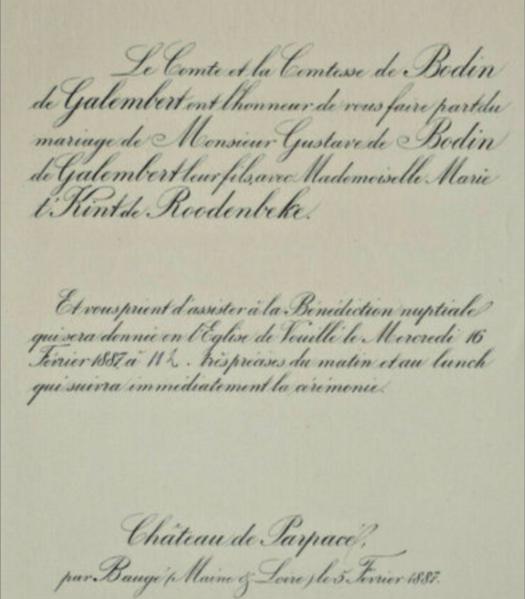 Le Comte et la Comtesse de Bodin
de Galembert ont l'honneur de vous faire part du
mariage de Monsieur Gustave de Bodin
de Galembert leur fils, avec Mademoiselle Marie
t'Kint de Roodenbeke.
Et vous prient d'assister à la Bénédiction nuptiale
qui sera donnée en l'Eglise de Vouillé le Mercredi 16
Février 1887 à 11 h. très précises du matin et au lunch
qui suivra immédiatement la cérémonie.
Château de Parpacé,
par Baugé (Maine & Loire) le 5 Février 1887.